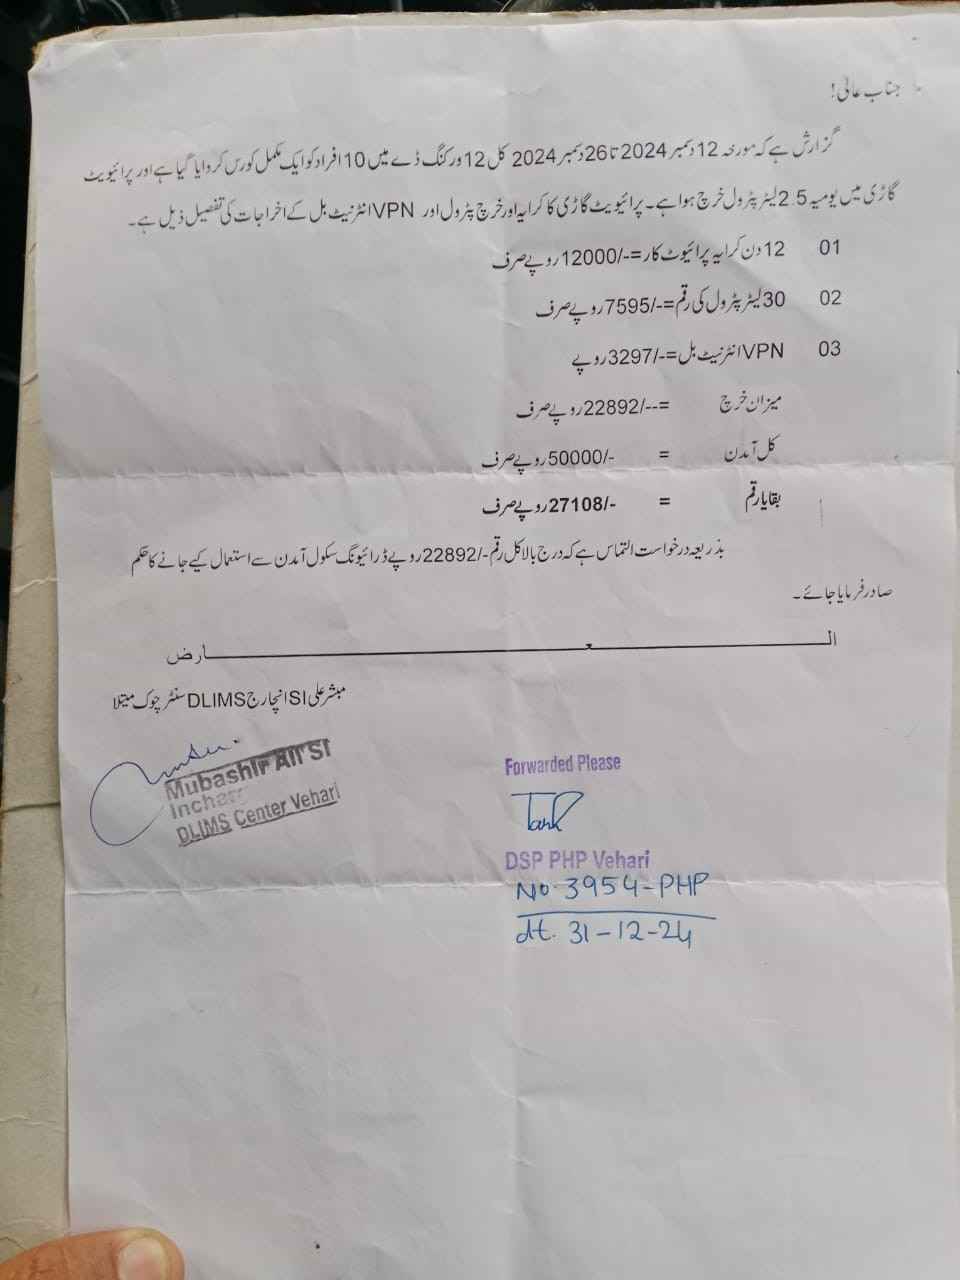 جناب عالی!
گزارش ہے کہ مورخہ 12 دسمبر 2024 تا 26 دسمبر 2024 کل 12 ورکنگ ڈے میں 10 افراد کو ایک مکمل کورس کروایا گیا ہے اور پرائیویٹ
گاڑی میں یومیہ 2.5 لیٹر پٹرول خرچ ہوا ہے۔ پرائیویٹ گاڑی کا کرایہ اور خرچ پٹرول اور VPN انٹرنیٹ بل کے اخراجات کی تفصیل ذیل ہے۔
01 12 دن کرایہ پرائیوٹ کار =-/12000 روپے صرف
02 30 لیٹر پٹرول کی رقم =-/7595 روپے صرف
03 VPN انٹرنیٹ بل =-/3297 روپے
میزان خرچ =--/22892 روپے صرف
کل آمدن = 50000/- روپے صرف
بقایا رقم = 27108/- روپے صرف
بذریعہ درخواست التماس ہے کہ درج بالا کل رقم -/22892 روپے ڈرائیونگ سکول آمدن سے استعمال کیے جانے کا حکم
صادر فرمایا جائے۔
العارض
مبشر علی SI انچارج DLIMS سنٹر چوک میتلا
Mubashir Ali SI
Incharge
DLIMS Center Vehari
Forwarded Please
DSP PHP Vehari
No. 3954-PHP
dt. 31-12-24